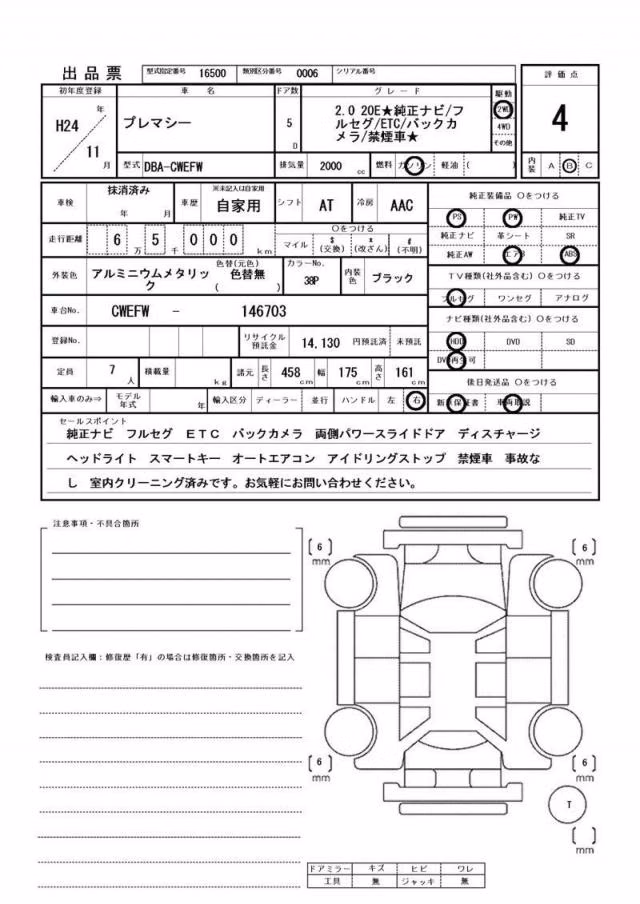 出品票 型式指定番号 16500 類別区分番号 0006 シリアル番号
評価点
4
初年度登録 車名 ドア数 グレード 駆動
H24 年 11 月
プレマシー
5 D
2.0 20E★純正ナビ/フ
ルセグ/ETC/バックカ
メラ/禁煙車★
2WD
4WD
その他
型式 DBA-CWEFW 排気量 2000 cc 燃料 ガソリン 軽油 ( ) 内装 A B C
車検 抹消済み 年 月 車歴 ※未記入は自家用 自家用 シフト AT 冷房 AAC
純正装備品 〇をつける
PS PW 純正TV
純正ナビ 革シート SR
純正AW エアB ABS
走行距離 6 万 5 千 0 0 0 km
〇をつける
マイル $ (交換) x (改ざん) # (不明)
外装色 アルミニウムメタリッ
ク
色替(元色)
色替無
( )
カラーNo.
38P
内装色 ブラック
TV種類(社外品含む) 〇をつける
フルセグ ワンセグ アナログ
車台No. CWEFW - 146703
ナビ種類(社外品含む) 〇をつける
HDD DVD SD
DVD再生可
登録No. リサイクル預託金 14,130 円預託済 未預託
定員 7 人 積載量 kg 諸元 長さ 458 cm 幅 175 cm 高さ 161 cm
後日発送品 〇をつける
新車保証書 車両取説
輸入車のみ⇒ モデル年式 年 輸入区分 ディーラー 並行 ハンドル 左 右
セールスポイント
純正ナビ フルセグ ETC バックカメラ 両側パワースライドドア ディスチャージ
ヘッドライト スマートキー オートエアコン アイドリングストップ 禁煙車 事故な
し 室内クリーニング済みです。お気軽にお問い合わせください。
注意事項・不具合箇所
[ 6 ] mm
[ 6 ] mm
検査員記入欄:修復歴「有」の場合は修復箇所・交換箇所を記入
[ 6 ] mm
[ 6 ] mm
T
[ ] mm
ドアミラー キズ ヒビ ワレ
工具 無 ジャッキ 無